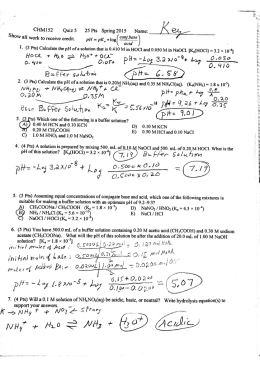 CHM152 Quiz 5 25 Pts Spring 2015 Name: Key
Show all work to receive credit. pH = pKa + log
1. (3 Pts) Calculate the pH of a solution that is 0.410 M in HOCl and 0.050 M in NaOCl. [Ka(HOCl) = 3.2 x 10⁻⁸]
HOCl + H2O ⇌ H3O⁺ + OCl⁻
0.410 0.050
pH = -Log 3.2x10⁻⁸ + Log 0.050/0.410
Buffer solution pH = 6.58
2. (3 Pts) Calculate the pH of a solution that is 0.20M NH3 and 0.35 M NH4
0.20M 0.35M
pH = 9.26 + Log 0.20/0.35
Buffer Solution
pH = 9.01
3. (3 Pts) Which one of the following is a buffer solution?
A) 0.40 M HCN and 0.10 KCN
B) 0.20 M CH3COOH
C) 1.0 M HNO3 and 1.0 M NaNO3
D) 0.10 M KCN
E) 0.50 M HCl and 0.10 NaCl
4. (4 Pts) A solution is prepared by mixing 500. mL of 0.10 M NaOCl and 500. mL of 0.20 M HOCl. What is the
pH of this solution? [Ka(HOCl) = 3.2 x 10⁻⁸] 7.19 Buffer Solution
pH = -Log 3.2x10⁻⁸ + Log 0.500x0.10/0.500x0.20 = 7.19
5. (3 Pts) Assuming equal concentrations of conjugate base and acid, which one of the following mixtures is
suitable for making a buffer solution with an optimum pH of 9.2-9.3?
A) CH3COONa / CH3COOH (Ka = 1.8 x 10⁻⁵)
B) NH3 / NH4Cl (Ka = 5.6 x 10⁻¹⁰)
C) NaOCl / HOCl (Ka = 3.2 x 10⁻⁸)
D) NaNO2 / HNO2 (Ka = 4.5 x 10⁻⁴)
E) NaCl / HCl
6. (5 Pts) You have 500.0 mL of a buffer solution containing 0.20 M acetic acid (CH3COOH) and 0.30 M sodium
acetate (CH3COONa). What will the pH of this solution be after the addition of 20.0 mL of 1.00 M NaOH
solution? [Ka = 1.8 x 10⁻⁵]
initial moles of acid:
initial moles of base:
pH = -Log 1.8x10⁻⁵ + Log = 5.07
7. (4 Pts) Will a 0.1 M solution of NH4NO3(aq) be acidic, basic, or neutral? Write hydrolysis equation(s) to
support your answers.
NH4⁺ + NO3⁻ strong
NH4⁺ + H2O ⇌ NH3 + H3O⁺ Acidic